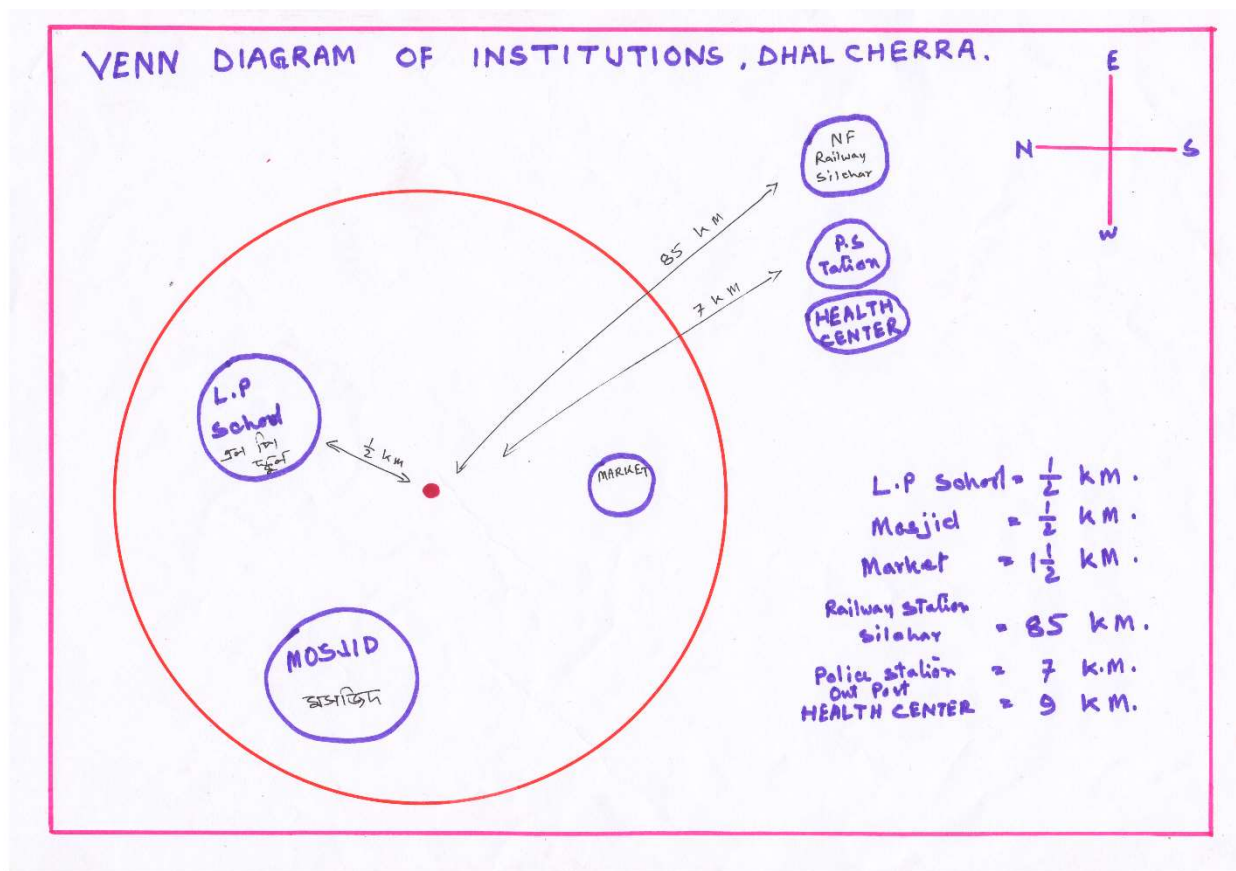 VENN DIAGRAM OF INSTITUTIONS, DHAL CHERRA.
E
N
S
W
NF
Railway
Silchar
85 KM
P.S
Tation
7 KM
HEALTH
CENTER
L.P
School
এল পি
স্কুল
1/2 KM
MARKET
MOSJID
মসজিদ
L.P School = 1/2 KM.
Masjid = 1/2 KM.
Market = 1 1/2 KM.
Railway Station
Silchar = 85 KM.
Police Station = 7 K.M.
Out Post
HEALTH CENTER = 9 KM.